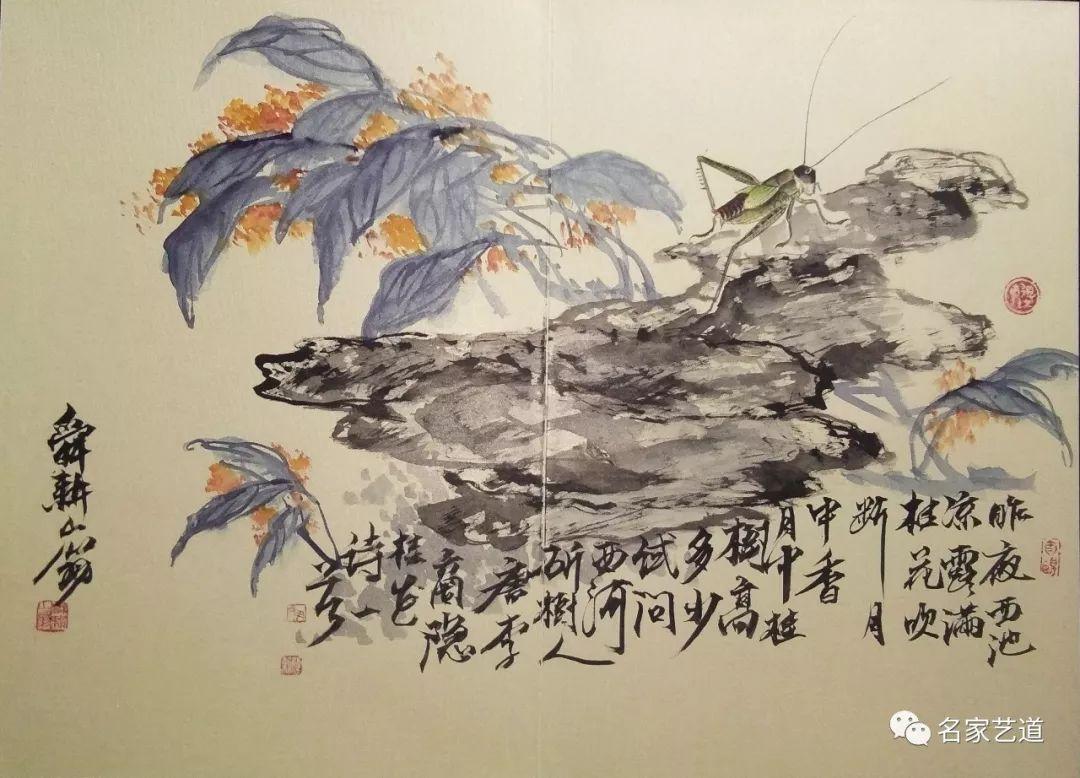 昨夜西池
凉露满
桂花吹
断月
中香
月中桂
樹高
多少
试问
西河
斫樹人
唐李
商隐
桂花
诗一
首
舜耕山翁
名家艺道